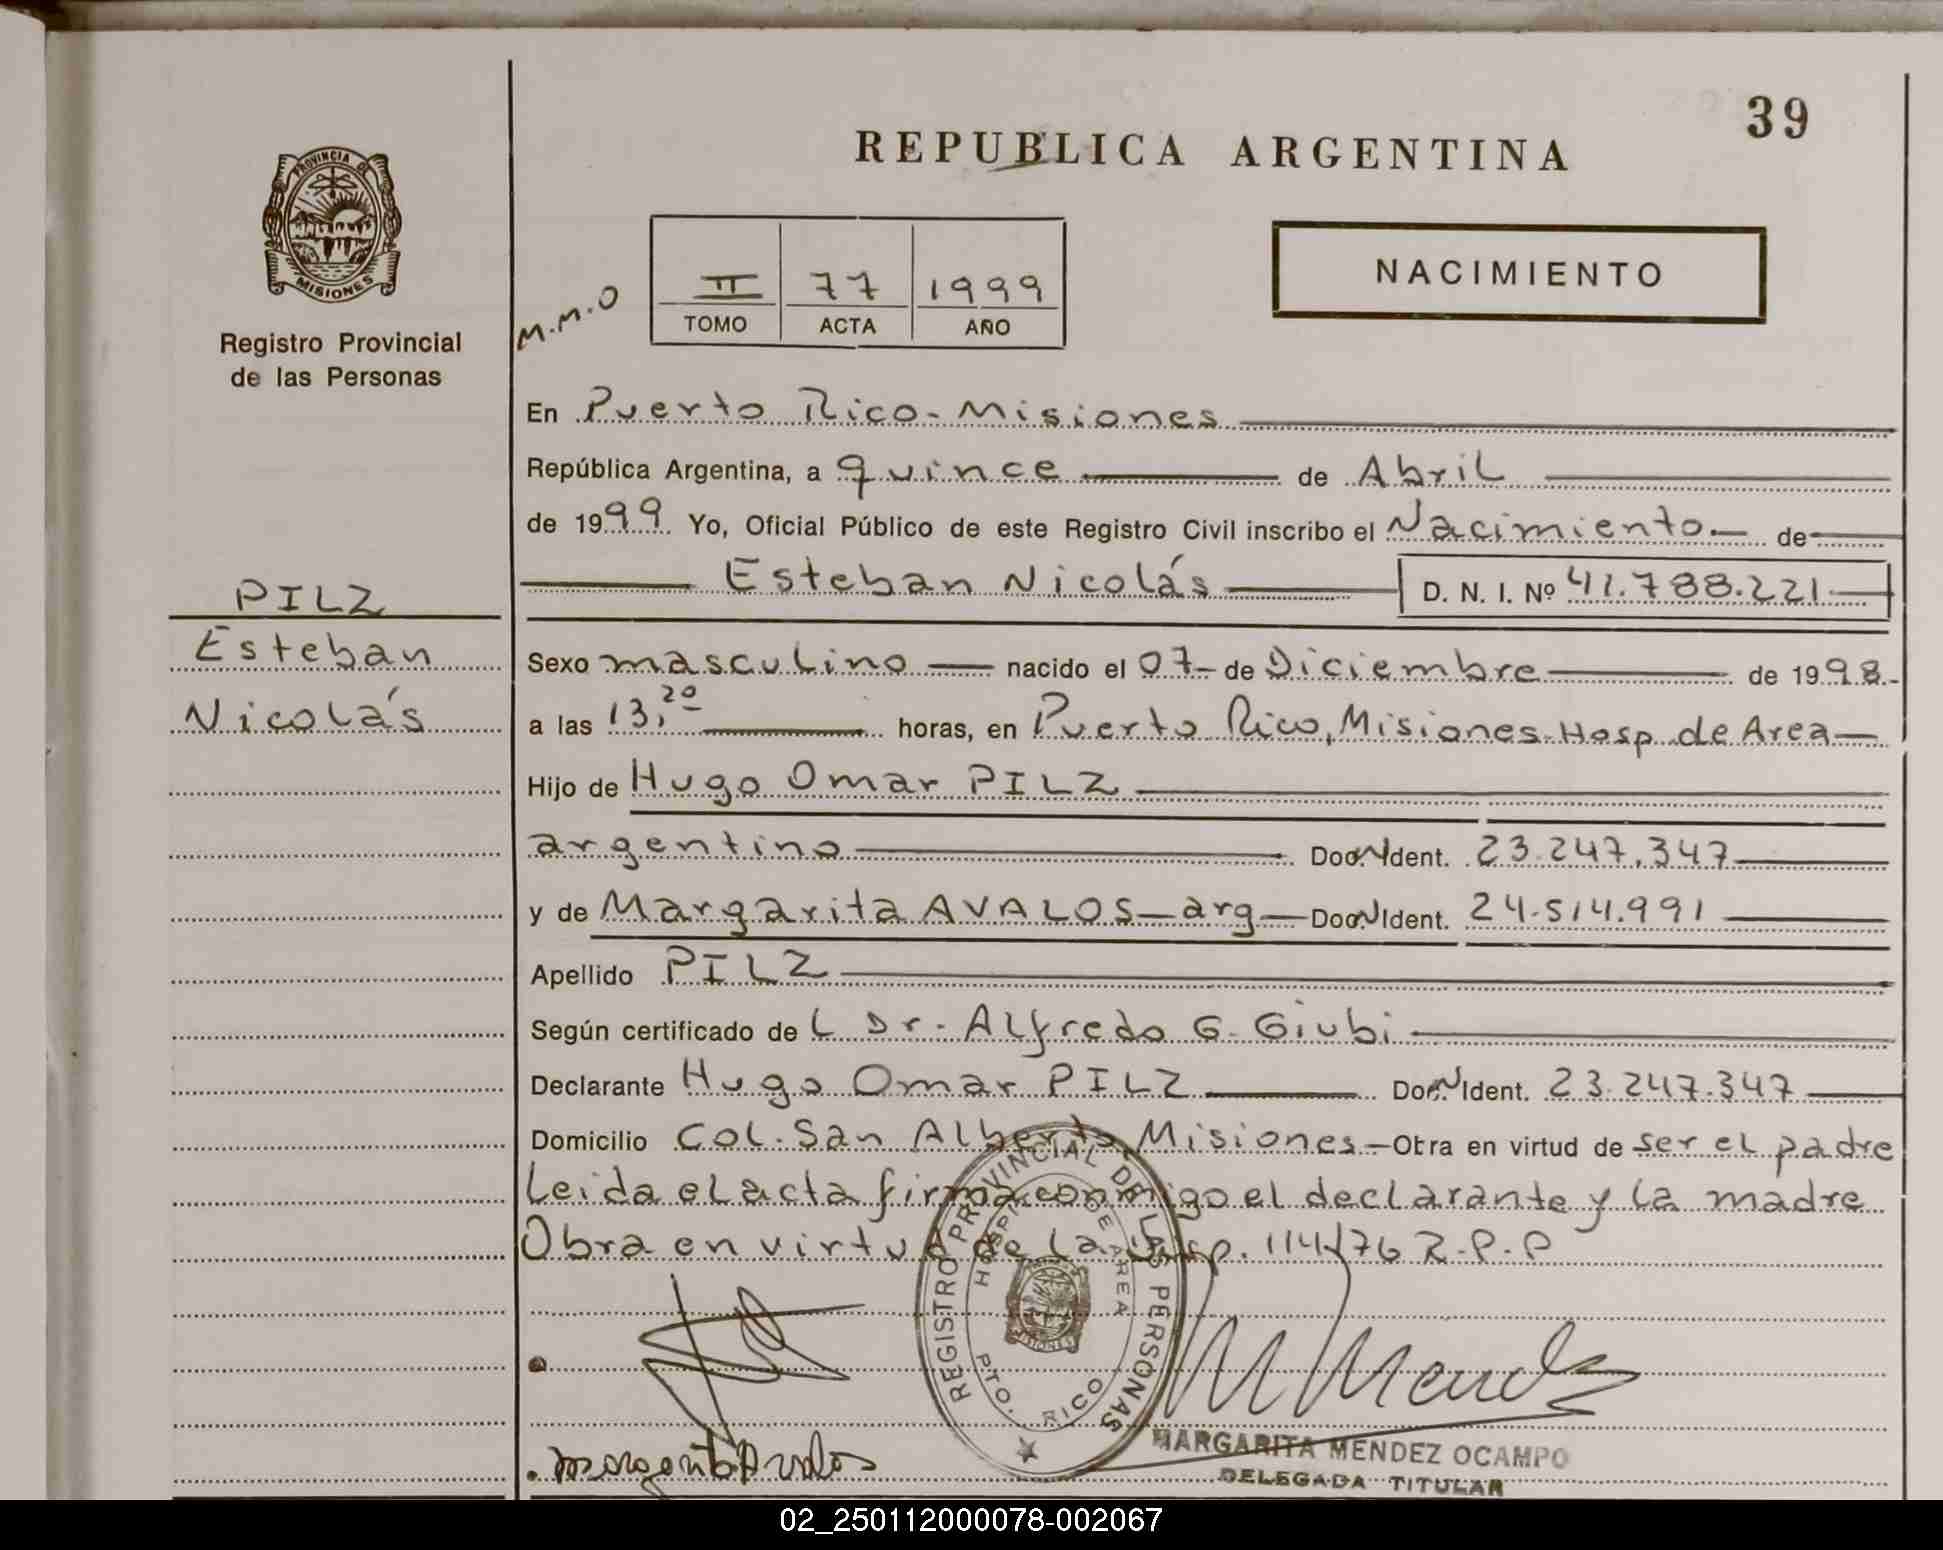 39
REPUBLICA ARGENTINA
PROVINCIA DE
MISIONES
Registro Provincial
de las Personas
M.M.O
II 77 1999
TOMO ACTA AÑO
NACIMIENTO
En Puerto Rico - Misiones
República Argentina, a quince de Abril
de 1999 Yo, Oficial Público de este Registro Civil inscribo el Nacimiento de
Esteban Nicolás D. N. I. Nº 41.788.221
PILZ
Esteban
Nicolás
Sexo masculino nacido el 07 de Diciembre de 1998
a las 13,20 horas, en Puerto Rico, Misiones-Hosp. de Area
Hijo de Hugo Omar PILZ
argentino Doc. N Ident. 23.247.347
y de Margarita AVALOS - arg Doc. N Ident. 24.514.991
Apellido PILZ
Según certificado de L Dr. Alfredo G. Giubi
Declarante Hugo Omar PILZ Doc. N Ident. 23.247.347
Domicilio Col. San Alberto Misiones - Obra en virtud de ser el padre
Leida el acta firma conmigo el declarante y la madre
Obra en virtud de la Disp. 114/76 R.P.P
REGISTRO PROVINCIAL DE LAS PERSONAS
HOSPITAL DE AREA
MISIONES
PTO. RICO
M Mendez
Margarita Avalos
MARGARITA MENDEZ OCAMPO
DELEGADA TITULAR
02_250112000078-002067